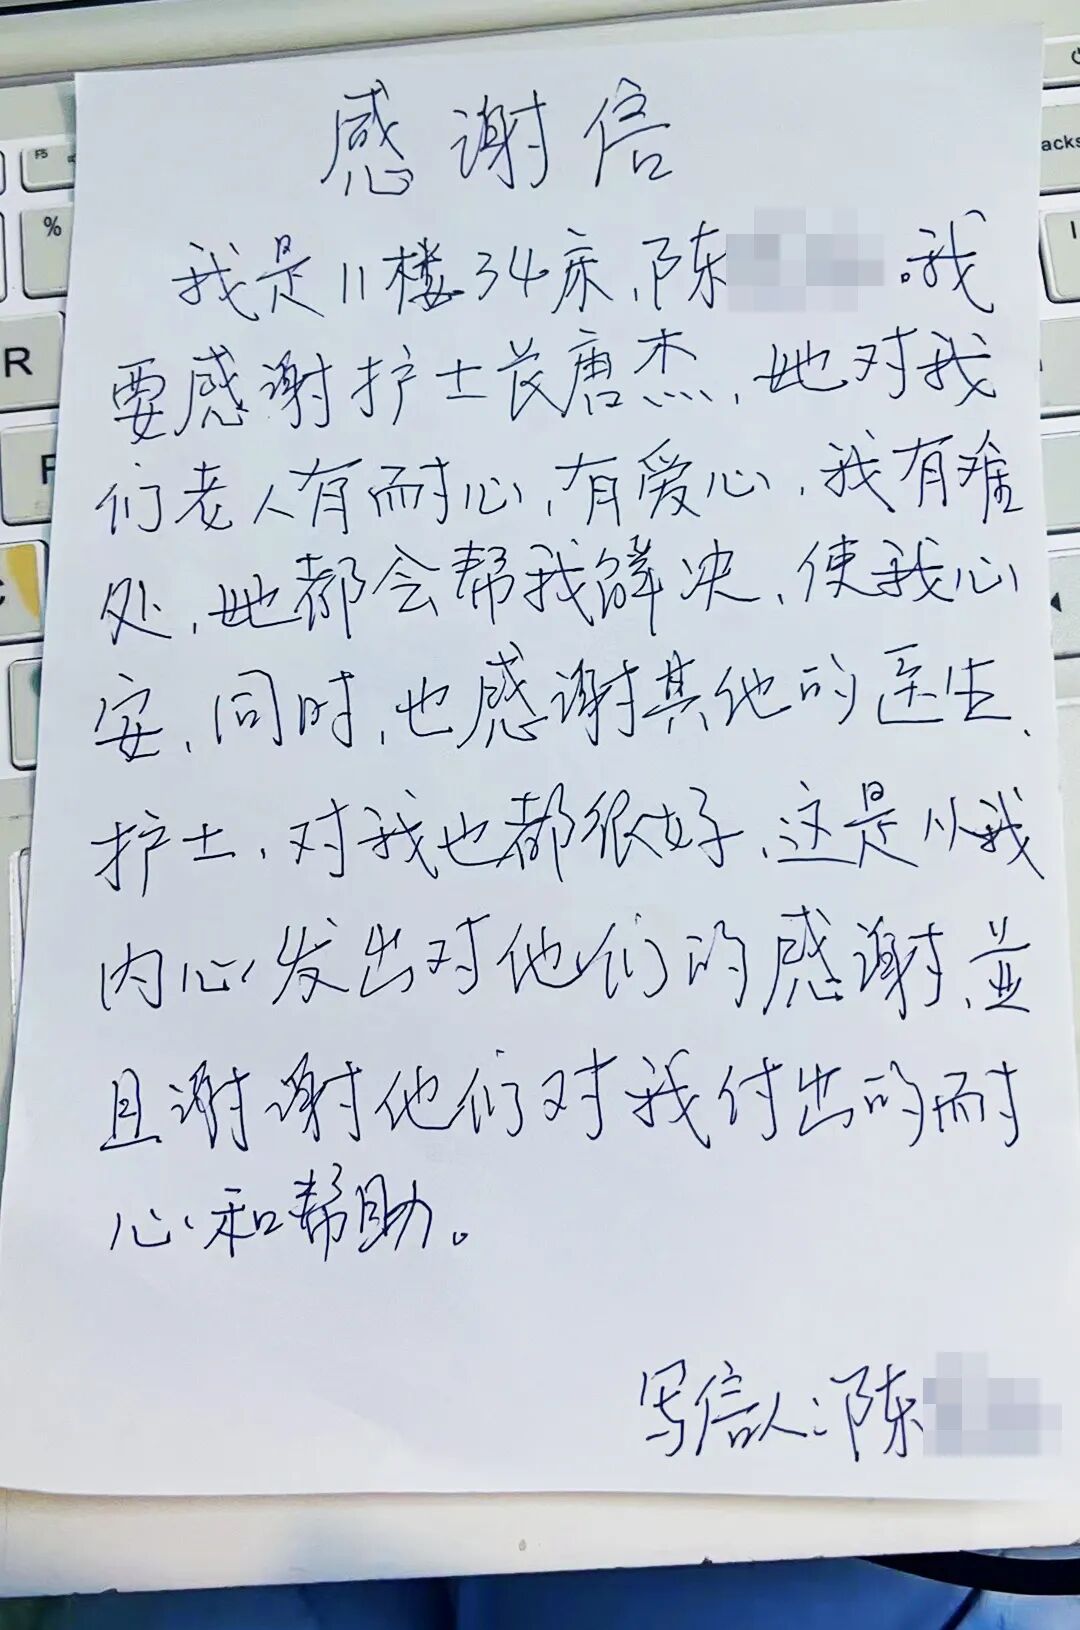 感谢信
我是11楼34床,陈 。我
要感谢护士长唐杰,她对我
们老人有耐心,有爱心,我有难
处,她都会帮我解决,使我心
安,同时,也感谢其他的医生、
护士,对我也都很好,这是从我
内心发出对他们的感谢,並
且谢谢他们对我付出的耐
心和帮助。
写信人:陈
F5
%
R
F
acks